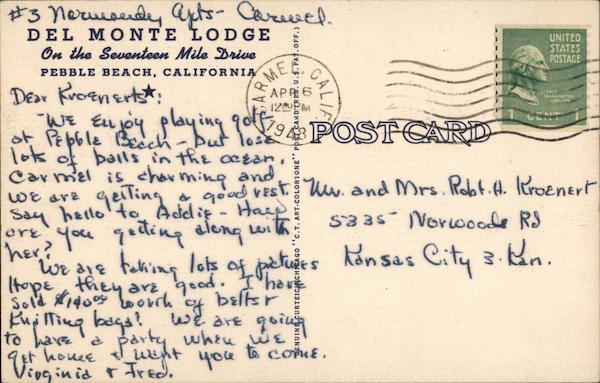 #3 Normandy Apts - Carmel.
DEL MONTE LODGE
On the Seventeen Mile Drive
PEBBLE BEACH, CALIFORNIA
Dear Kroenerts★:
We enjoy playing golf
at Pebble Beach - but lose
lots of balls in the ocean.
Carmel is charming and
we are getting a good rest.
Say hello to Addie - How
are you getting along with
her?
We are taking lots of pictures
Hope they are good. I have
sold $140.00 worth of belts &
Knitting bags! We are going
to have a party when we
get home & want you to come.
Virginia & Fred.
CARMEL, CALIF.
APR 6
12 M
1948
UNITED
STATES
POSTAGE
1 CENT 1
POST CARD
Mr. and Mrs. Robt. H. Kroenert
5335 Norwoods Rd
Kansas City 3. Kan.
GENUINE CURTEICH-CHICAGO "C.T. ART-COLORTONE" POST CARD (REG. U.S. PAT. OFF.)